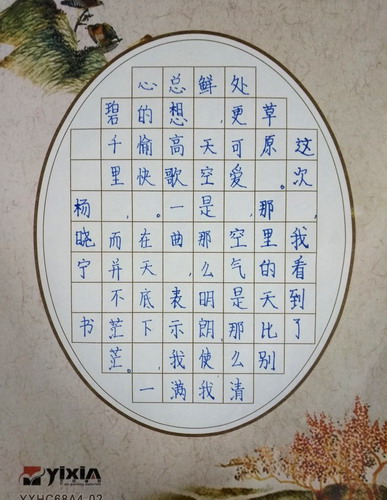 这次,我看到了
草原。那里的天比别
处更可爱,空气是那么清
鲜,天空是那么明朗,使我
总想高歌一曲,表示我满
心的愉快。在天底下,一
碧千里,而并不茫茫。
杨晓宁 书
YiXiN
YXHC68A4-02